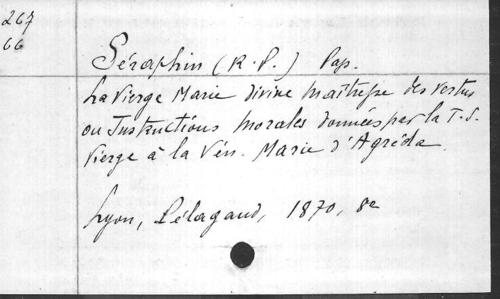 267
66
Séraphin (R.P.) Pas.
La Vierge Marie divine maîtresse des vertus
ou Instructions morales données par la T.S.
Vierge à la Vén. Marie d'Agréda
Lyon, Pélagaud, 1870, 8e